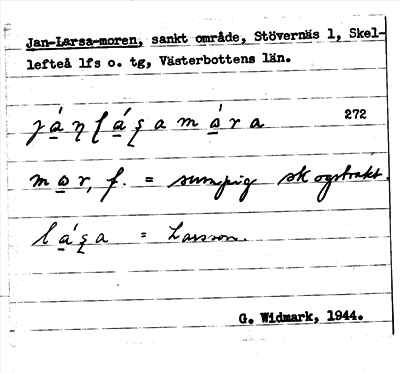 Jan-Larsa-moren, sankt område, Stövernäs 1, Skel-
lefteå lfs o. tg, Västerbottens län.
272
f. = sumpig skogstrakt.
= Larsson.
G. Widmark, 1944.